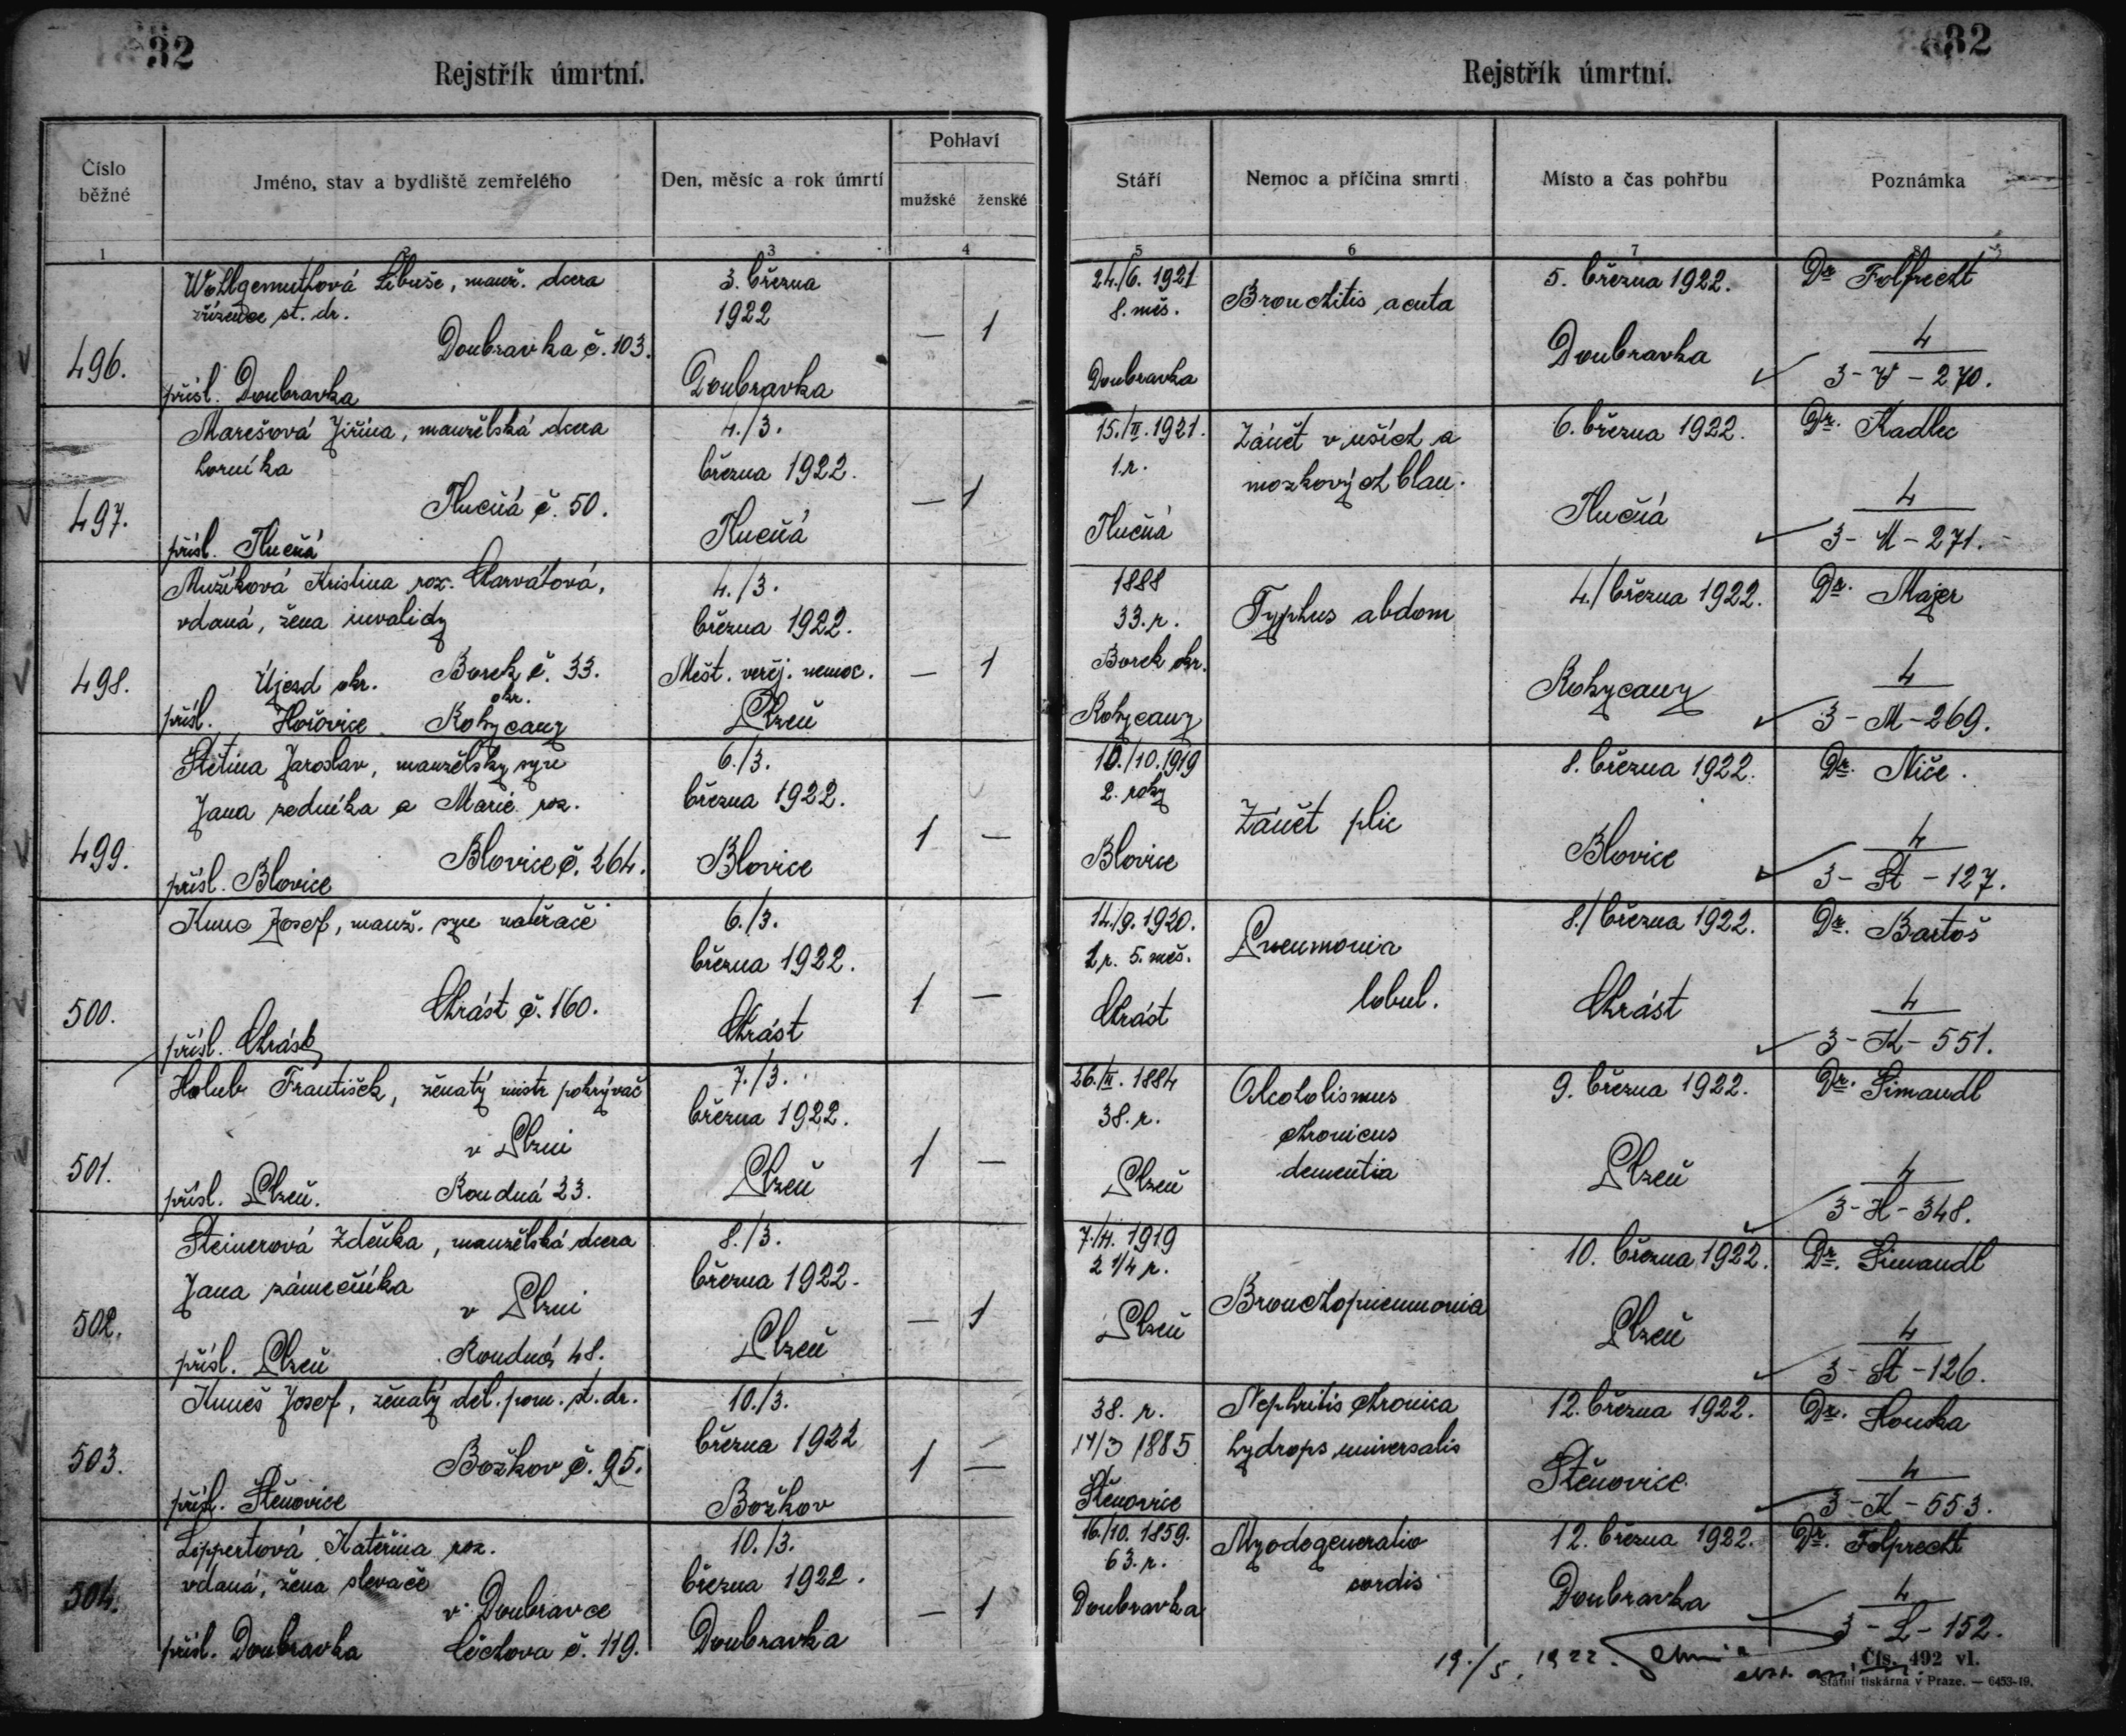 32
Rejstřík úmrtní.
Číslo běžné
Jméno, stav a bydliště zemřelého
Den, měsíc a rok úmrtí
Pohlaví
mužské
ženské
1
3
4
496.
Wohlgemuthová Libuše, manž. dcera
zřízence st. dr.
Doubravka č. 103.
přísl. Doubravka
3. března
1922
Doubravka
— 1
497.
Marešová Jiřina, manželská dcera
horníka
Tlučná č. 50.
přísl. Tlučná
4./3.
března 1922.
Tlučná
— 1
498.
Mužíková Kristina roz. Charvátová,
vdaná, žena invalidy
Újezd okr. Borek č. 33.
okr.
přísl. Hořovice Rokycany
4./3.
března 1922.
Měst. veřej. nemoc.
Plzeň
— 1
499.
Štětina Jaroslav, manželský syn
Jana zedníka a Marie roz.
Blovice č. 264.
přísl. Blovice
6./3.
března 1922.
Blovice
1 —
500.
Kunc Josef, manž. syn natěrače
Chrást č. 160.
přísl. Chrást
6./3.
března 1922.
Chrást
1 —
501.
Holub František, ženatý mistr pokrývač
v Plzni
přísl. Plzeň. Roudná 23.
7./3.
března 1922.
Plzeň
1 —
502.
Steinerová Zdeňka, manželská dcera
Jana zámečníka
v Plzni
přísl. Plzeň Roudná 48.
8./3.
března 1922.
Plzeň
— 1
503.
Kuneš Josef, ženatý děl. pom. st. dr.
Božkov č. 95.
přísl. Štěnovice
10./3.
března 1922
Božkov
1 —
504.
Lippertová Kateřina roz.
vdaná, žena slevače
v Doubravce
přísl. Doubravka č. 119.
10./3.
března 1922.
Doubravka
— 1
32
Rejstřík úmrtní.
Stáří
Nemoc a příčina smrti
Místo a čas pohřbu
Poznámka
5
6
7
24./6. 1921
8. měs.
Doubravka
Bronchitis acuta
5. března 1922.
Doubravka
Dr Folprecht
4
3 - W - 270.
15./II. 1921.
1 r.
Tlučná
Zánět v uších a
mozkových blan.
6. března 1922.
Tlučná
Dr. Kadlec
4
3 - M - 271.
1888
33. r.
Borek okr.
Rokycany
Typhus abdom
4./ března 1922.
Rokycany
Dr. Majer
4
3 - M - 269.
10./10. 1919
2. roky
Blovice
Zánět plic
8. března 1922.
Blovice
Dr. Niče.
4
3 - St - 127.
14./9. 1920.
1 r. 5. měs.
Chrást
Pneumonia
lobul.
8./ března 1922.
Chrást
Dr. Bartoš
4
3 - K - 551.
1884
38. r.
Plzeň
Alcoholismus
chronicus
dementia
9. března 1922.
Plzeň
Dr. Šimandl
4
3 - H - 348.
1919
2 1/4 r.
Plzeň
Bronchopneumonia
10. března 1922.
Plzeň
Dr. Šimandl
4
3 - St - 126.
38. r.
14/3 1885
Štěnovice
Nephritis chronica
hydrops universalis
12. března 1922.
Štěnovice
Dr. Houska
4
3 - K - 553.
16./10. 1859.
63. r.
Doubravka
Myodegeneratio
cordis
12. března 1922.
Doubravka
Dr. Folprecht
4
3 - L - 152.
19./5. 1922.
Čís. 492 vl.
Státní tiskárna v Praze. — 6453-19.